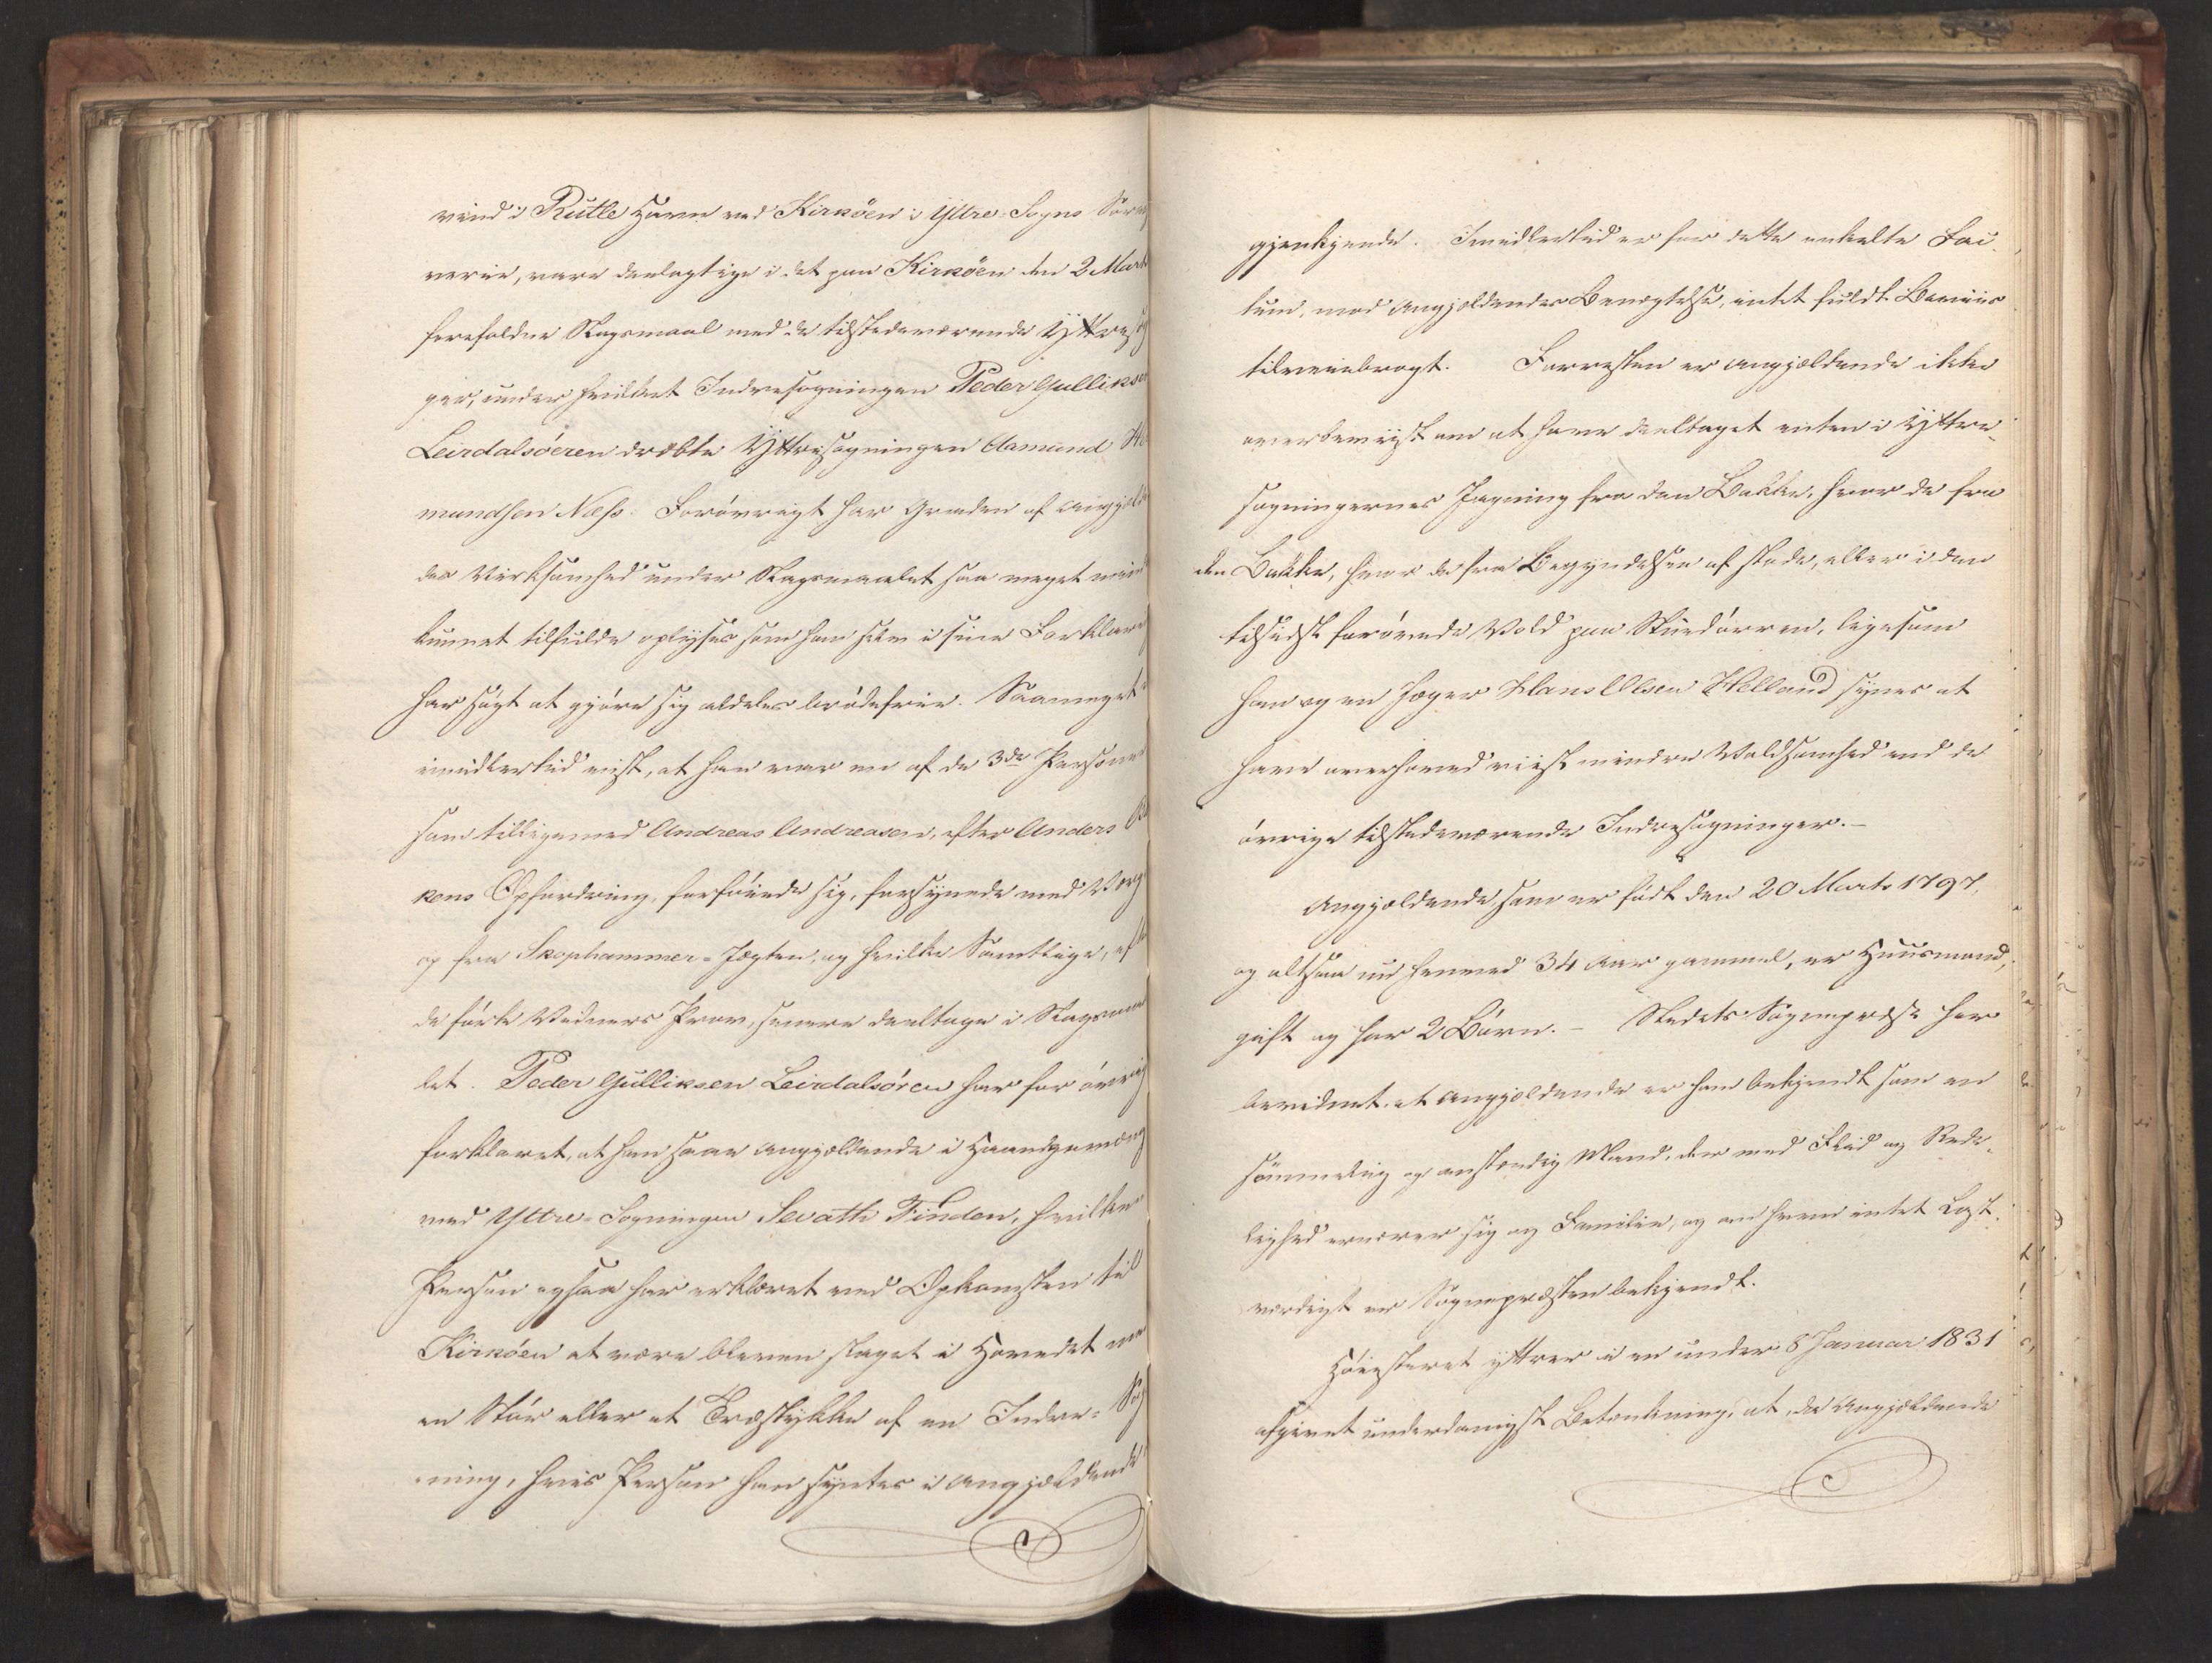 vind i Rutle Havn ved Kirköen i Yttre-Sogns Soren
verie, vare deelagtige i det paa Kirköen den 2 Marts
forefaldne Slagsmaal med de tilstedeværende Yttresog
ger, under hvilket Indresogningen Peder Gulliksen
Leirdalsöeren dræbte Yttresogningen Aamund
mundsen Næss. Forövrigt har Graden af Angjælden
des Virksomhed under Slagsmaalet saa meget mindre
kunnet tilfulde oplyses som han selv i sine Forklar
har sögt at gjöre sig aldeles brödefrie. Saameget
imidlertid vist, at han var en af de 3de Personer
som tilligemed Andreas Andreasen, efter Anders
kens Opfordring, forföiede sig, forsynede med Værg
op fra Skophammer-Jægten, og hvilke Samtlige, efter
de förte Vidners Prov, senere deeltoge i Slagsmaa
let. Peder Gulliksen Leirdalsören har for övrigt
forklaret, at han saae Angjældende i Haandgemæng
med Yttre-Sogningen Sevath Finden, hvilken
Person ogsaa har erklæret ved Opkomsten til
Kirköen at være bleven slaget i Hovedet med
en Stör eller et Træstykke af en Indre-Sog
ning, hvis Person han syntes i Angjældende
gjenkjende. Imidlertid er for dette enkelte Fac
tum, mod Angjældendes Benægtelse, intet fuldt Beviis
tilveiebragt. Forresten er Angjældende ikke
overbeviist om at have deeltaget enten i Yttre
sogningernes Jagning fra den Bakke, hvor de fra
den Bakke, hvor de fra Begyndelsen af stode, eller i den
tilsidst forövede Vold paa Skuedörren, ligesom
han og en Jæger Hans Olsen Helland synes at
have overhoved viist mindre Voldsomhed end de
övrige tilstedeværende Indresogninger.-
Angjældende, som er födt den 20 Marts 1797,
og altsaa nu henved 34 Aar gammel, er Huusmand,
gift og har 2 Börn. - Stedets Sognepræst har
bevidnet, at Angjældende er ham bekjendt som en
sömmelig og anstændig Mand, der med Flid og Rede
lighed ernærer sig og Familie, og om hvem intet Last
værdigt er Sognepræsten bekjendt.
Höiesteret yttrer i en under 8 Januar 1831
afgivet underdanigst Betænkning, at, da Angjældende